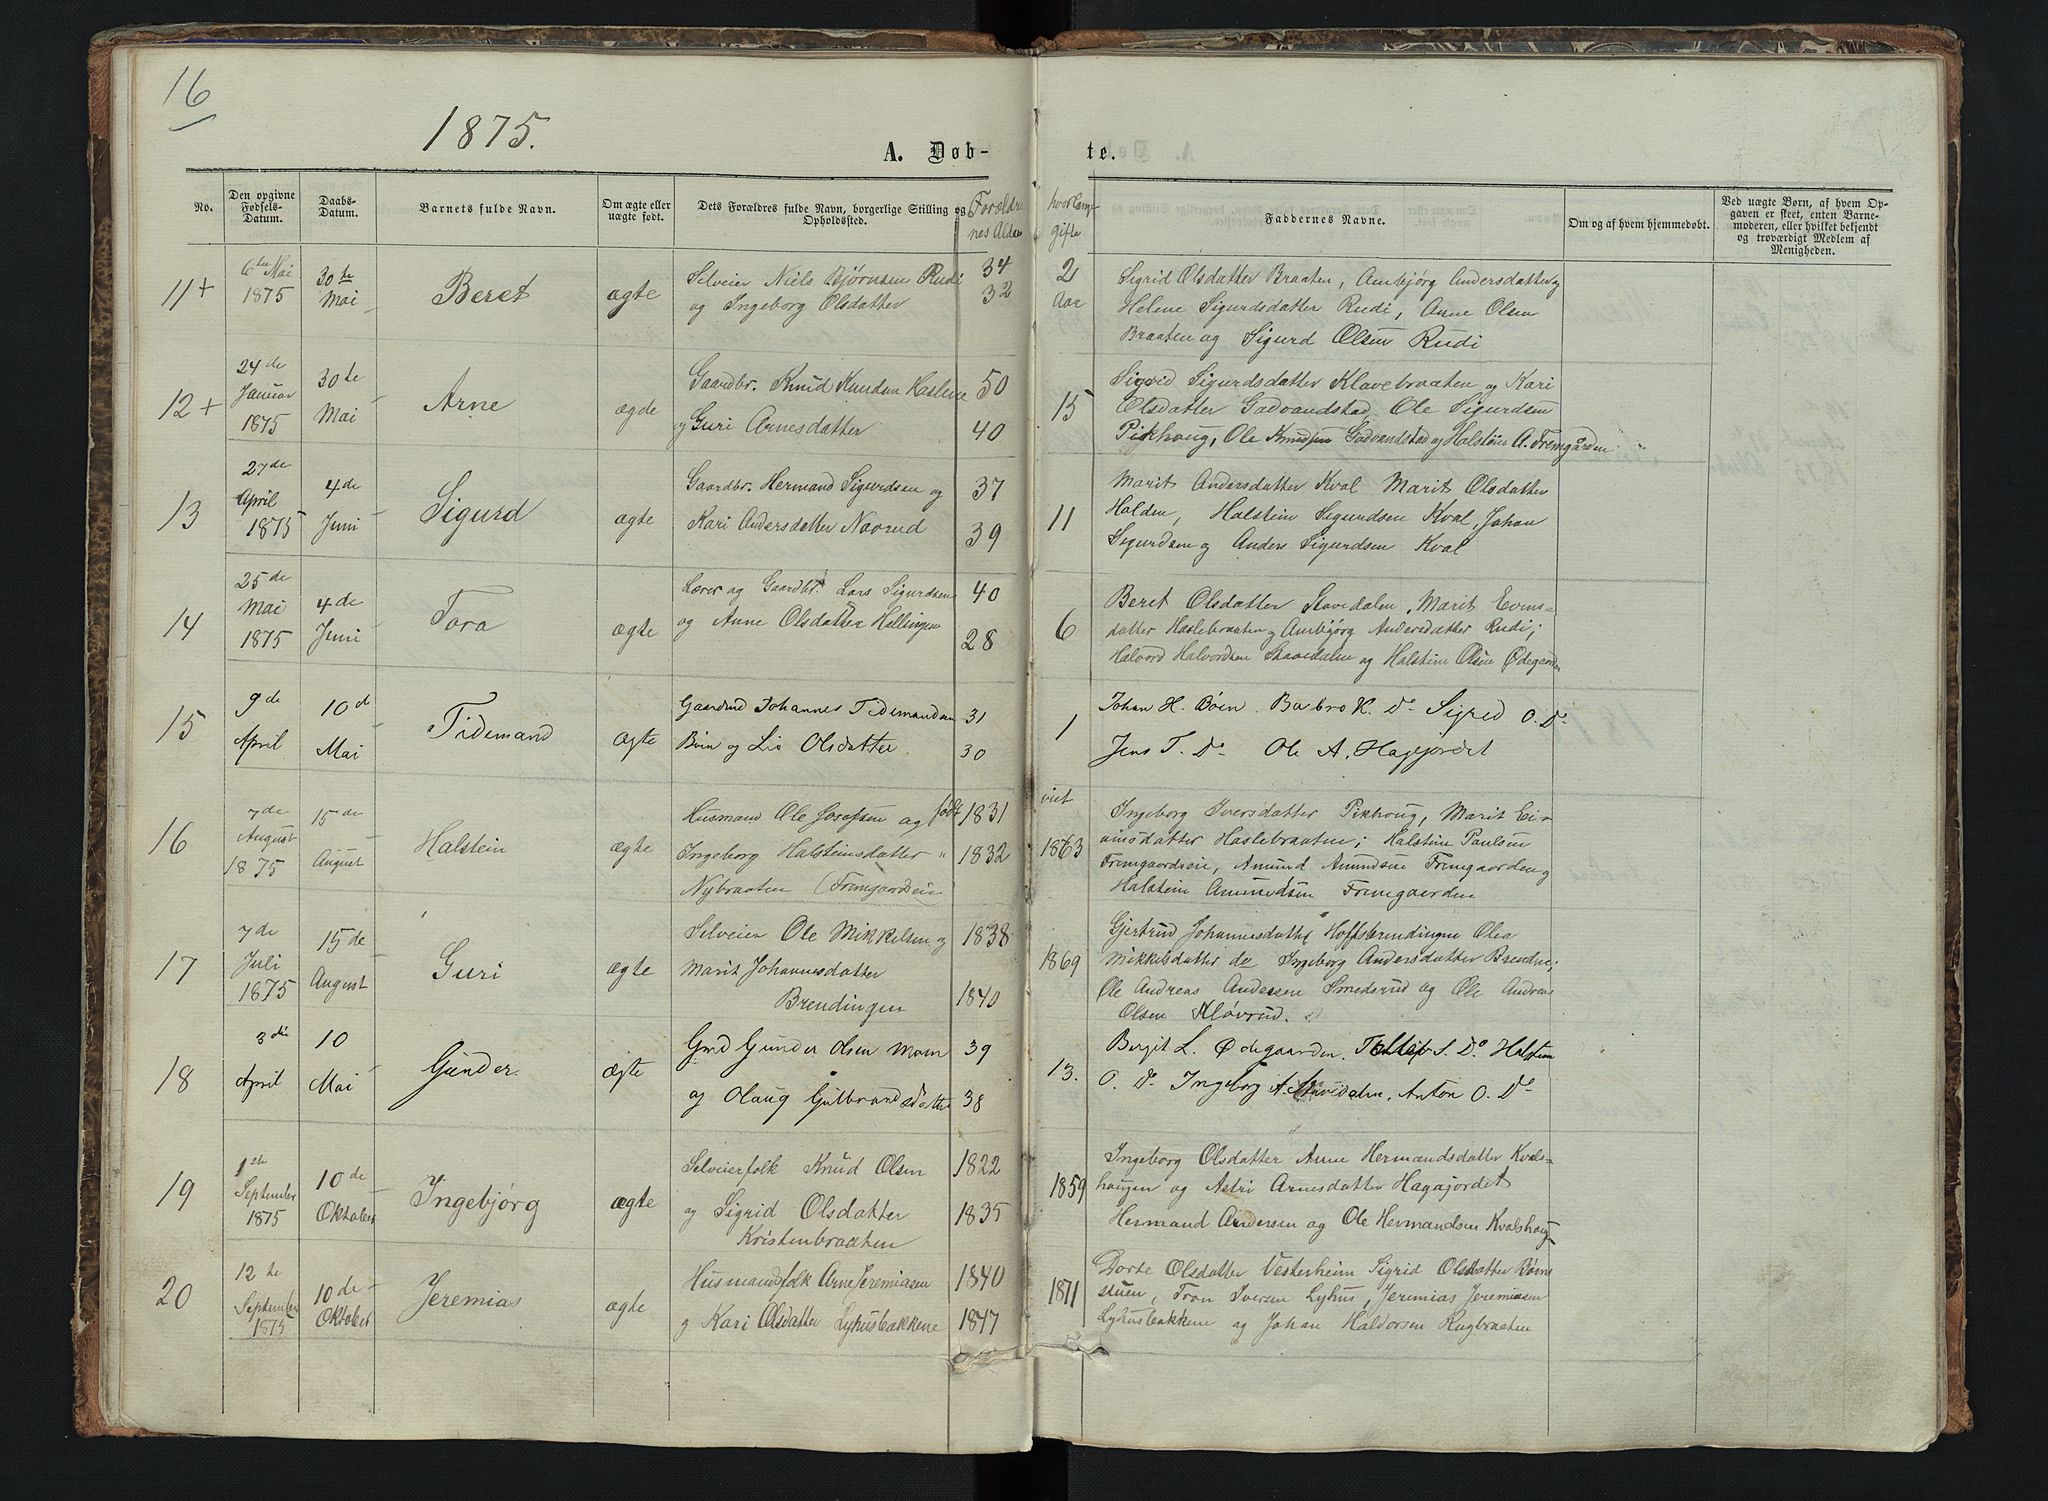 16
1875.
A. Døb-
te.
No.
Den opgivne Fødsels-Datum.
Daabs-Datum.
Barnets fulde Navn.
Om ægte eller uægte født.
Dets Forældres fulde Navn, borgerlige Stilling og Opholdssted.
Forældrenes Alder
hvorlænge gifte
Faddernes Navne.
Om og af hvem hjemmedøbt.
Ved uægte Børn, af hvem Opgaven er skeet, enten Barnemoderen, eller hvilket bekjendt og troværdigt Medlem af Menigheden.
11+
6te Mai
1875
30te
Mai
Beret
ægte
Selveier Niels Bjørnsen Rudi
og Ingeborg Olsdatter
34
32
2
Aar
Sigrid Olsdatter Braaten, Anbjørg Andersdatter og
Helene Sigurdsdatter Rudi, Arne Olsen
Braaten og Sigurd Olsen Rudi
12+
24de
Januar
1875
30te
Mai
Arne
ægde
Gaardbr. Knud Knudsen Haslene
og Guri Arnesdatter
50
40
15
Sigrid Sigurdsdatter Klavebraaten og Kari
Olsdatter Gadvandstad, Ole Sigurdsen
Pikhoug, Ole Knudsen Gadvandstad og Halstein A. Fremgården
13
27de
April
1875
4de
Juni
Sigurd
ægte
Gaardbr. Hermand Sigurdsen og
Kari Andersdatter Navrud
37
39
11
Marit Andersdatter Kval Marit Olsdatter
Halden, Halstein Sigurdsen Kval, Johan
Sigurdsen og Anders Sigurdsen Kval
14
25de
Mai
1875
4de
Juni
Tora
ægte
Lærer og Gaardbr. Lars Sigurdsen
og Anne Olsdatter Hellingen
40
28
6
Beret Olsdatter Stavedalen, Marit Evens-
datter Haslebraaten og Anbjørg Andersdatter Rudi;
Halvord Halvordsen Stavedalen og Halstein Olsen Ødegaarden
15
9de
April
10de
Mai
Tidemand
ægte
Gaardmd Johannes Tidemandsen
Bøen og Liv Olsdatter.
31
30
1
Johan H. Bøen. Barbro K. Do Sigrid O. Do
Jens T. Do Ole A. Hagejordet
16
7de
August
1875
15de
August
Halstein
ægte
Husmand Ole Josefsen og født
Ingeborg Halsteinsdatter "
Nybraaten (Fremgaardseie
1831
1832
viet
1863
Ingeborg Iversdatter Pikhoug, Marit Ei-
vinsdatter Haslebraaten; Halstein Paulsen
Fremgaardseie, Amund Amundsen Fremgaarden og
Halstein Amundsen Fremgaarden
17
7de
Juli
1875
15de
August
Guri
ægte
Selveier Ole Mikkelsen og
Marit Johannesdatter
Brendingen
1838
1840
1869
Gjertrud Johannesdatter Hoffsbrendingen Olea
Mikkelsdatter do Ingeborg Andersdatter Brenden;
Ole Andreas Andersen Smedsrud og Ole Andreas
Olsen Kløvrud.
18
3die
April
10
Mai
Gunder
ægte
Gmd Gunder Olsen Moen
og Olaug Gulbrandsdatter
39
38
13.
Bergit L. Ødegaarden. Tollef S. Do Halstein
O. Do Ingeborg A. Stavedalen. Anton O. Do
19
1ste
September
1875
10de
Oktober
Ingebjørg
ægte
Selveierfolk Knud Olsen
og Sigrid Olsdatter
Kristenbraaten
1822
1835
1859
Ingeborg Olsdatter Anne Hermandsdatter Kvals-
hougen og Astri Arnesdatter Hagajordet
Hermand Andersen og Ole Hermandsen Kvalshoug
20
12te
September
1875
10de
Oktober
Jeremias
ægte
Husmandsfolk Arne Jeremiasen
og Kari Olsdatter Lyhusbakkene
1840
1847
1871
Dorte Olsdatter Vesterheim Sigrid Olsdatter Børne
stuen, Tron Iversen Lyhus, Jeremias Jeremiasen
Lyhusbakkene og Johan Haldorsen Rugbraaten